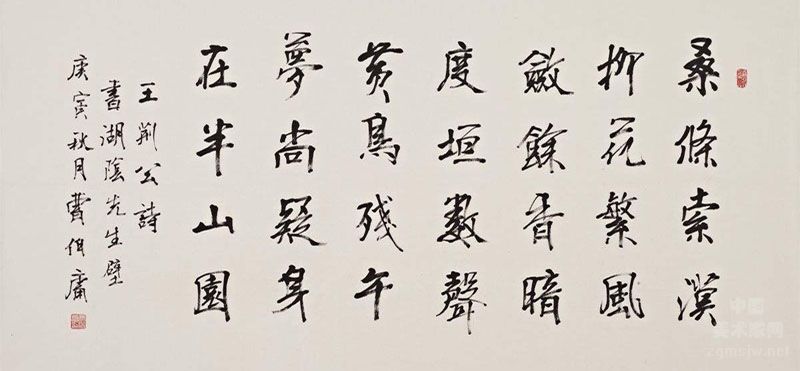 桑條索漠
柳花繁風
斂餘香暗
度垣数聲
黄鳥殘午
夢尚疑身
在半山園
王荆公詩
書湖陰先生壁
庚寅秋月費庸
中国
美术家网
zgmsjw.net